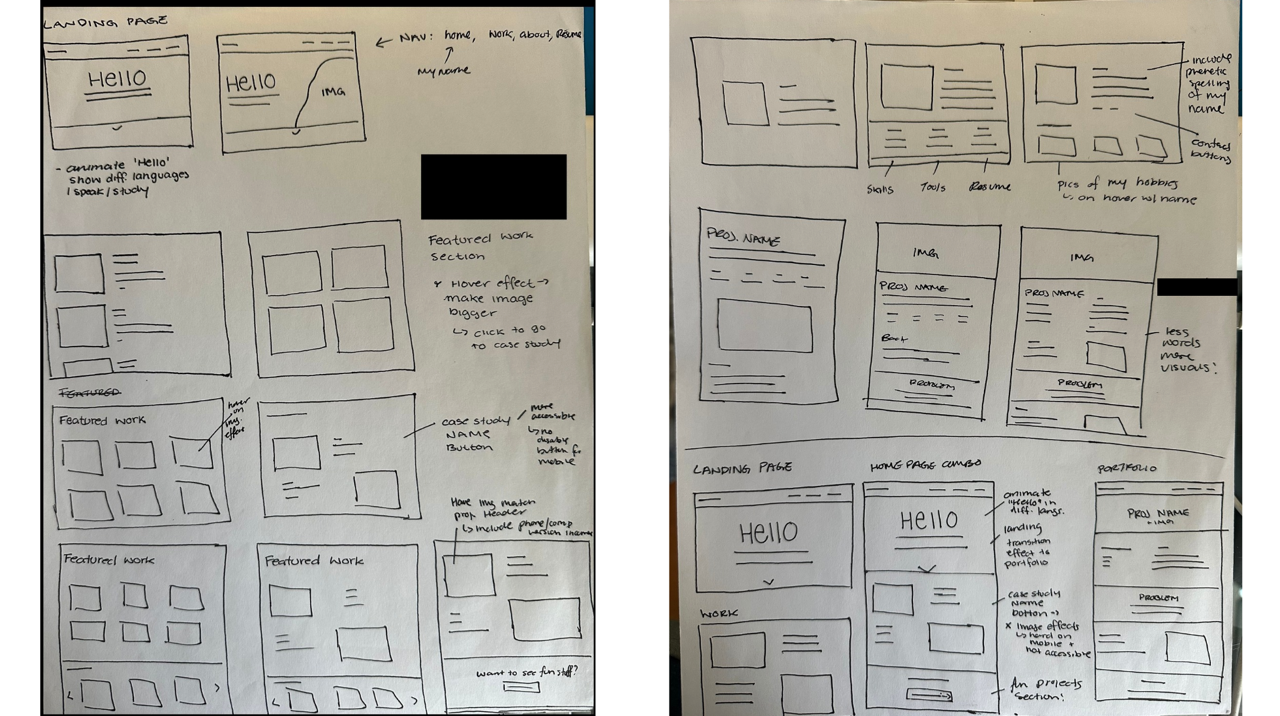 LANDING PAGE
Hello
Hello
IMG
NAV: home, work, about, Resume
My name
- animate 'Hello'
show diff. languages
I speak/study
Featured work
section
* Hover effect →
make image
bigger
↳ click to go
to case study
FEATURED
Featured work
hover
on
img.
case study
NAME
Button
more
accessible
↳ no
button for
mobile
Have img match
proj. Header
↳ include phone/comp
version
Featured work
Featured work
want to see fun stuff?
include
phonetic
spelling
of my
name
contact
buttons
Skills
Tools
Resume
pics of my hobbies
↳ on hover w/ name
PROJ. NAME
IMG
PROJ NAME
PROBLEM
IMG
PROJ NAME
PROBLEM
less
words
more
visuals!
LANDING PAGE
Hello
WORK
HOME PAGE COMBO
Hello
animate
"Hello" in
diff. langs.
landing
transition
effect to
portfolio
case study
Name
button →
* Image effects
↳ hard on
mobile +
not accessible
fun projects
section!
PORTFOLIO
PROJ NAME
+ IMG
PROBLEM